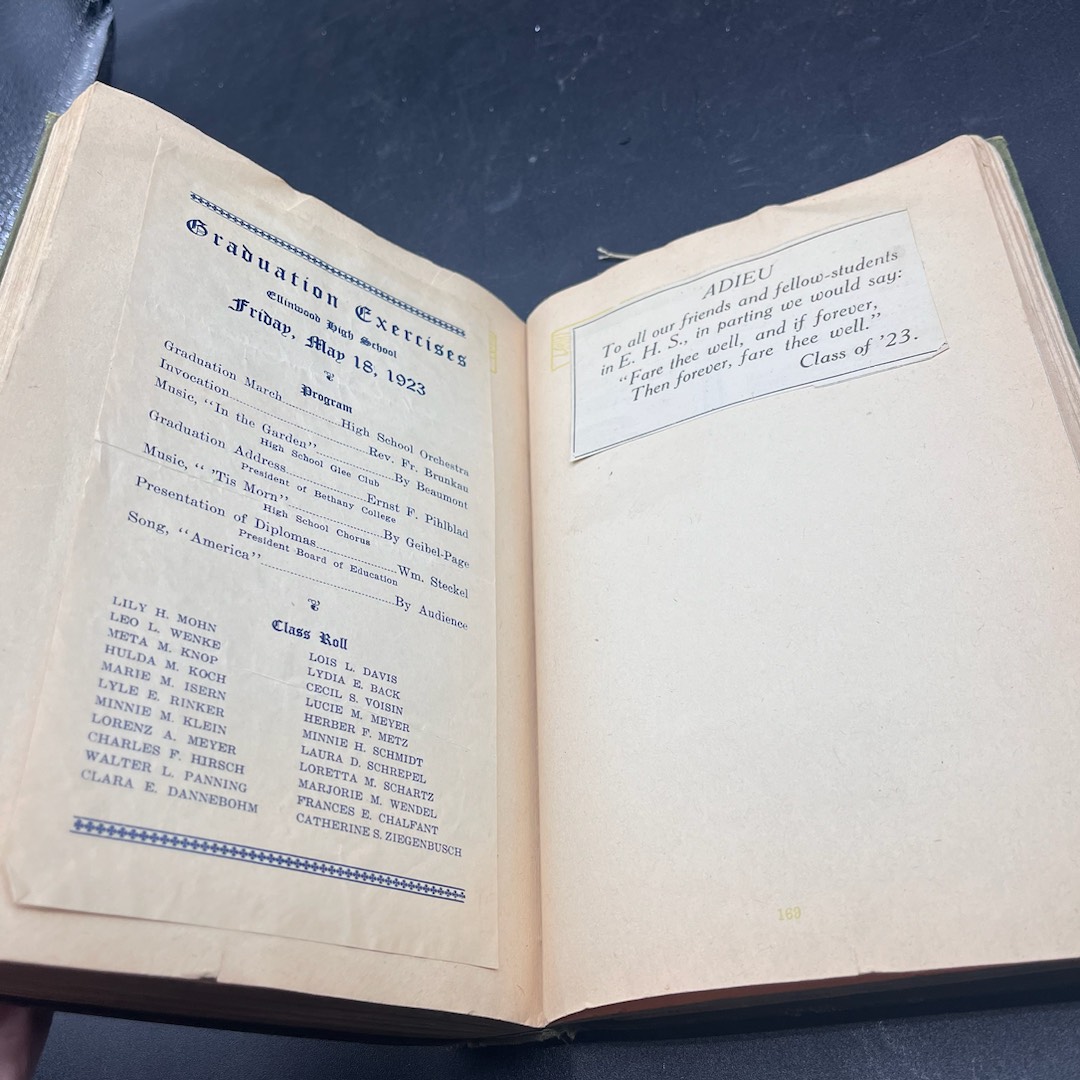 Graduation Exercises
Ellinwood High School
Friday, May 18, 1923
Program
Graduation March High School Orchestra
Invocation Rev. Fr. Brunkau
Music, "In the Garden" By Beaumont
High School Glee Club
Graduation Address Ernst F. Pihlblad
President of Bethany College
Music, " 'Tis Morn" By Geibel-Page
High School Chorus
Presentation of Diplomas Wm. Steckel
President Board of Education
Song, "America" By Audience
Class Roll
LILY H. MOHN
LEO L. WENKE
META M. KNOP
HULDA M. KOCH
MARIE M. ISERN
LYLE E. RINKER
MINNIE M. KLEIN
LORENZ A. MEYER
CHARLES F. HIRSCH
WALTER L. PANNING
CLARA E. DANNEBOHM
LOIS L. DAVIS
LYDIA E. BACK
CECIL S. VOISIN
LUCIE M. MEYER
HERBER F. METZ
MINNIE H. SCHMIDT
LAURA D. SCHREPEL
LORETTA M. SCHARTZ
MARJORIE M. WENDEL
FRANCES E. CHALFANT
CATHERINE S. ZIEGENBUSCH
ADIEU
To all our friends and fellow-students
in E. H. S., in parting we would say:
"Fare thee well, and if forever,
Then forever, fare thee well."
Class of '23.
169